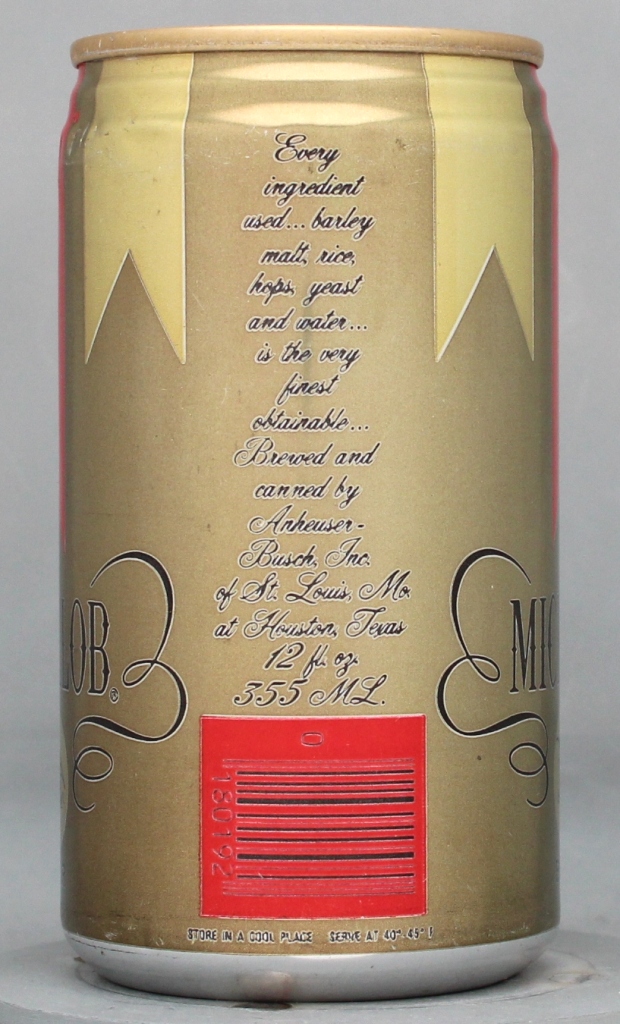 Every
ingredient
used... barley
malt, rice,
hops, yeast
and water...
is the very
finest
obtainable...
Brewed and
canned by
Anheuser-
Busch, Inc.
of St. Louis, Mo.
at Houston, Texas
12 fl. oz.
355 ML.
LOB®
MIC
0
180192
STORE IN A COOL PLACE SERVE AT 40°-45° F